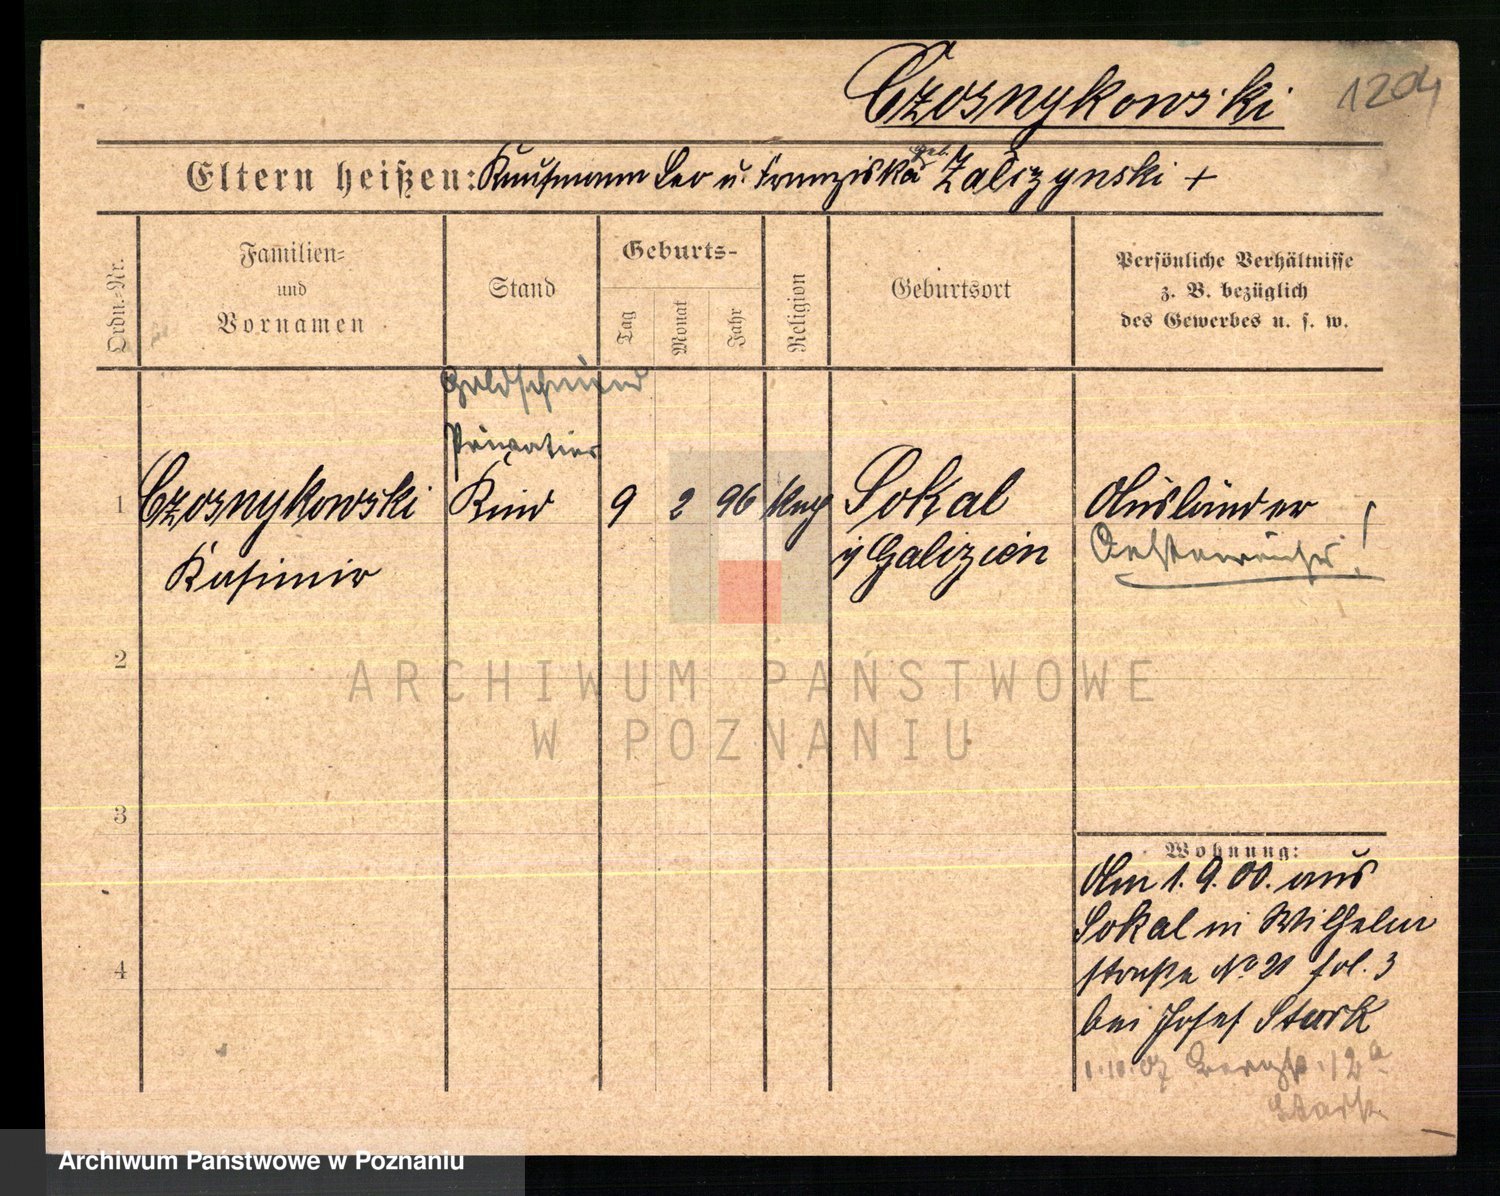 Czosnykowski 1204
Eltern heißen: Kaufmann Leo u. Franziska geb. Zaliczynski +
Ordn.-Nr.
Familien-
und
Vornamen
Stand
Geburts-
Tag
Monat
Jahr
Religion
Geburtsort
Persönliche Verhältnisse
z. B. bezüglich
des Gewerbes u. s. w.
Goldschmied
Privatier
1 Czosnykowski Kind 9 2 96 Sokal Ausländer
Kasimir i/ Galizien Oesterreicher!
2
ARCHIWUM PAŃSTWOWE
W POZNANIU
3
Wohnung:
Am 1.9.00. aus
Sokal in Wilhelm
straße No 21 fol. 3
bei Josef Stark
4
1.10.07 Bergstr. 12a
Stark
Archiwum Państwowe w Poznaniu